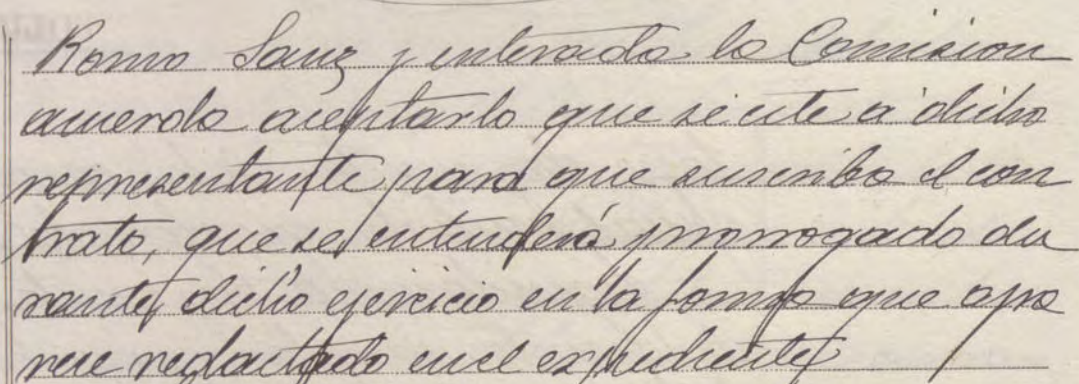 Romo Sanz y enterada la Comision
acuerda aceptarlo que se cite a dicho
representante para que suscriba el con
trato, que se entenderá prorrogado du
rante dicho ejercicio en la forma que apa
rece redactado en el expediente